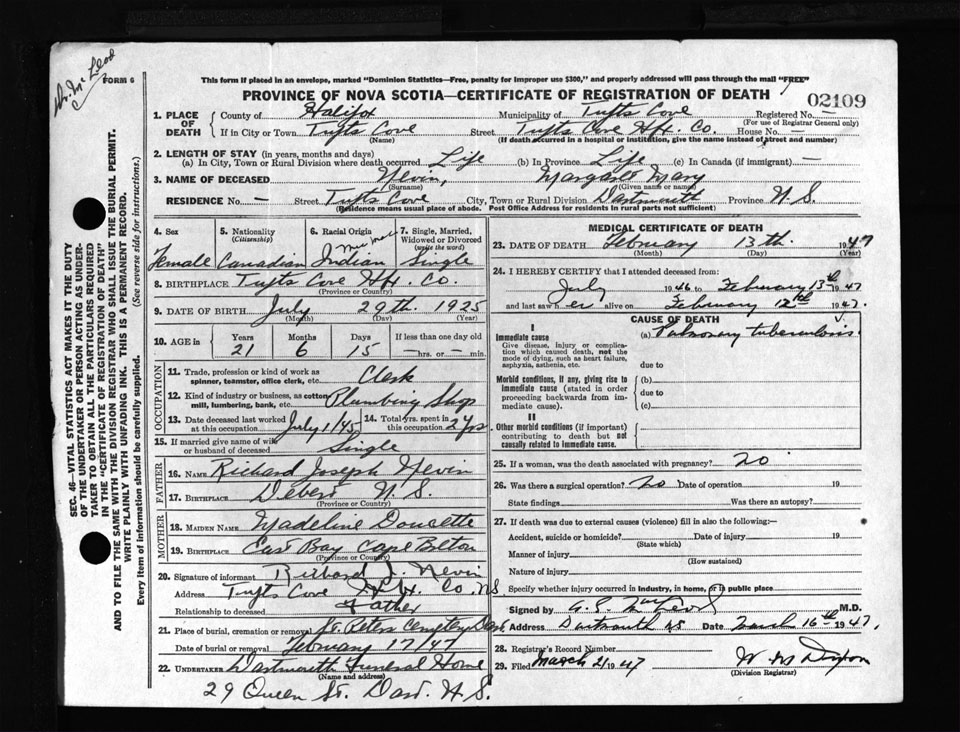 Dr. McLeod
FORM 6
This form if placed in an envelope, marked "Dominion Statistics—Free, penalty for improper use $300," and properly addressed will pass through the mail "FREE"
PROVINCE OF NOVA SCOTIA—CERTIFICATE OF REGISTRATION OF DEATH
02109
1. PLACE OF DEATH
County of Halifax Municipality of Tufts Cove Registered No. —
(For use of Registrar General only)
If in City or Town Tufts Cove Street Tufts Cove Hfx. Co. House No. —
(Name) (If death occurred in a hospital or institution, give the name instead of street and number)
2. LENGTH OF STAY (in years, months and days)
(a) In City, Town or Rural Division where death occurred Life (b) In Province Life (c) In Canada (if immigrant) —
3. NAME OF DECEASED Nevin, Margaret Mary
(Surname) (Given name or names)
RESIDENCE No. — Street Tufts Cove City, Town or Rural Division Dartmouth Province N.S.
(Residence means usual place of abode. Post Office Address for residents in rural parts not sufficient)
4. Sex 5. Nationality (Citizenship) 6. Racial Origin 7. Single, Married, Widowed or Divorced (write the word)
Female Canadian Indian Single
8. BIRTHPLACE Tufts Cove Hfx. Co.
(Province or Country)
9. DATE OF BIRTH July 29th. 1925
(Month) (Day) (Year)
10. AGE in Years Months Days If less than one day old
21 6 15 — hrs. or — min.
OCCUPATION
11. Trade, profession or kind of work as spinner, teamster, office clerk, etc. Clerk
12. Kind of industry or business, as cotton mill, lumbering, bank, etc. Plumbing Shop
13. Date deceased last worked at this occupation July 1/45 14. Total yrs. spent in this occupation 2 yrs.
15. If married give name of wife or husband of deceased Single
FATHER
16. NAME Richard Joseph Nevin
17. BIRTHPLACE Debert N.S.
(Province or Country)
MOTHER
18. MAIDEN NAME Madeline Doucette
19. BIRTHPLACE East Bay Cape Breton
(Province or Country)
20. Signature of informant Richard J. Nevin
Address Tufts Cove Hfx. Co. N.S
Relationship to deceased Father
21. Place of burial, cremation or removal St. Peters Cemetery Dart.
Date of burial or removal February 17/47
22. UNDERTAKER Dartmouth Funeral Home
(Name and address)
29 Queen St. Dart. N.S.
MEDICAL CERTIFICATE OF DEATH
23. DATE OF DEATH February 13th. 1947
(Month) (Day) (Year)
24. I HEREBY CERTIFY that I attended deceased from:
July 1946 to February 13th 1947
and last saw her alive on February 12th 1947.
CAUSE OF DEATH
I
Immediate cause
Give disease, injury or complication which caused death, not the mode of dying, such as heart failure, asphyxia, asthenia, etc.
(a) Pulmonary tuberculosis
due to
Morbid conditions, if any, giving rise to immediate cause (stated in order proceeding backwards from immediate cause).
(b)
due to
(c)
II
Other morbid conditions (if important) contributing to death but not causally related to immediate cause.
25. If a woman, was the death associated with pregnancy? no
26. Was there a surgical operation? no Date of operation 19
State findings Was there an autopsy?
27. If death was due to external causes (violence) fill in also the following:—
Accident, suicide or homicide? Date of injury 19
(State which)
Manner of injury
(How sustained)
Nature of injury
Specify whether injury occurred in Industry, in home, or in public place
Signed by M.D.
Address Dartmouth NS Date March 16th 1947.
28. Registrar's Record Number
29. Filed March 21 1947
(Division Registrar)
SEC. 46—VITAL STATISTICS ACT MAKES IT THE DUTY
OF THE UNDERTAKER OR PERSON ACTING AS UNDERTAKER TO OBTAIN ALL THE PARTICULARS REQUIRED
IN THE "CERTIFICATE OF REGISTRATION OF DEATH"
AND TO FILE THE SAME WITH THE DIVISION REGISTRAR WHO SHALL ISSUE THE BURIAL PERMIT.
WRITE PLAINLY WITH UNFADING INK. THIS IS A PERMANENT RECORD.
Every item of information should be carefully supplied. (See reverse side for instructions.)